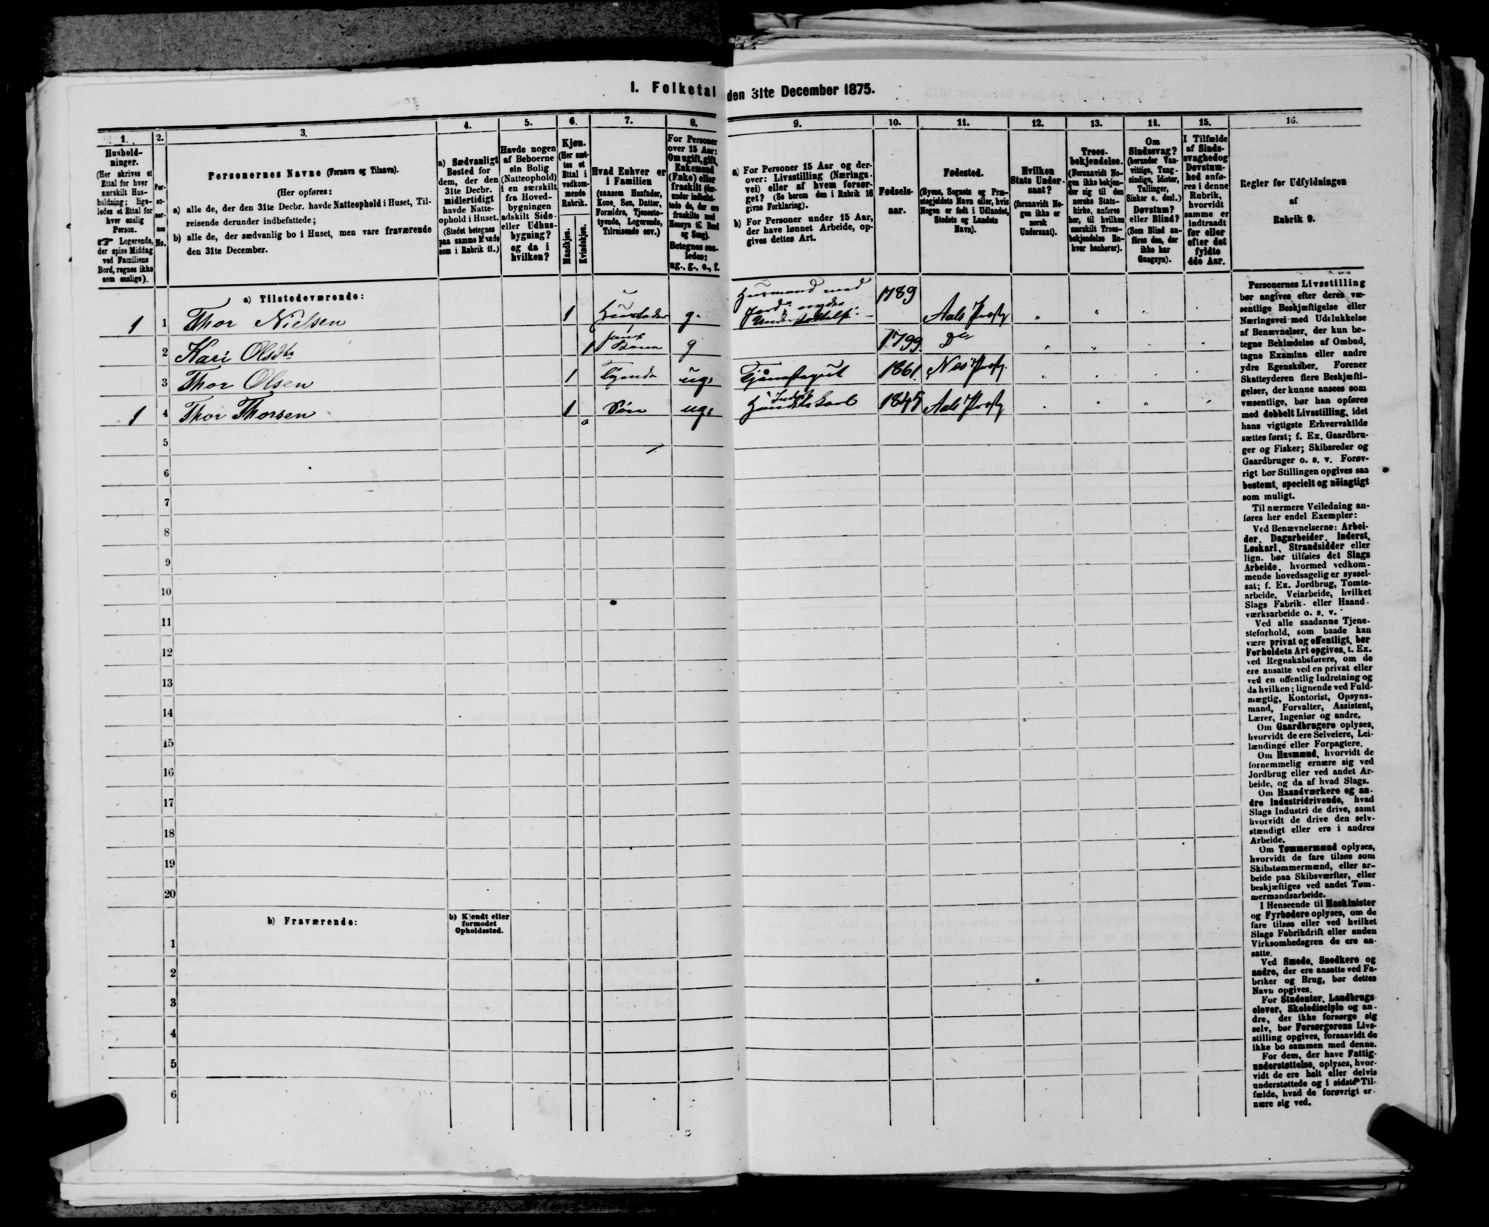 1. Folketal den 31te December 1875.
1. 2. 3. 4. 5. 6. 7. 8. 9. 10. 11. 12. 13. 14. 15. 16.
Personernes Navne (Fornavn og Tilnavn).
(Her opføres:
a) alle de, der den 31te Decbr. havde Natteophold i Huset, Til-
reisende derunder indbefattede;
b) alle de, der sædvanlig bo i Huset, men vare fraværende
den 31te December.
a) Sædvanligt
Bosted for
dem, der den
31te Decbr.
midlertidigt
havde Natte-
ophold i Huset.
(Stedet betegnes
paa samme Maade
som i Rubrik 11.)
Havde nogen
af Beboerne
sin Bolig
(Natteophold)
i en særskilt
fra Hoved-
bygningen
adskilt Side-
eller Udhus-
bygning?
og da i
hvilken?
Kjøn.
Mandkjøn.
Kvindekjøn.
Hvad Enhver er
i Familien
(saasom Husfader,
Kone, Søn, Datter,
Formldre, Tjeneste-
tyende, Logerende,
Tilreisende osv.)
For Personer
over 15 Aar:
Om ugift, gift,
Enkemand
(Enke) eller
fraskilt
Betegnes saa-
ledes:
ug., g., e., f.
a) For Personer 15 Aar og der-
over: Livsstilling (Nærings-
vei) eller af hvem forsør-
get? (Se herom den i Rubrik 16
givne Forklaring).
b) For Personer under 15 Aar,
der have lønnet Arbeide, op-
gives dettes Art.
Fødsels-
aar.
Fødested.
(Byens, Sognets og Præ-
stegjeldets Navn eller, hvis
Nogen er født i Udlandet,
Stedets og Landets
Navn).
Hvilken
Stats Under-
saat?
(forsaavidt No-
gen ikke er
norsk
Undersaat).
Troes-
bekjendelse.
(Forsaavidt No-
gen ikke bekjen-
der sig til den
norske Stats-
kirke, anføres
her, til hvilken
særskilt Troes-
bekjendelse En-
hver henhører).
Om
Sindssvag?
(herunder Van-
vittige, Tung-
sindige, Idioter,
Tullinger,
Sinker o. desl.)
Døvstum?
eller Blind?
(Som Blind an-
føres den, der
ikke har
Gangsyn).
I Tilfælde
af Sinds-
svaghed og
Døvstum-
hed anfø-
res i denne
Rubrik,
hvorvidt
samme er
indtraadt
før eller
efter det
fyldte
4de Aar.
Regler for Udfyldningen
af
Rubrik 9.
a) Tilstedeværende:
1 1 Thor Nielsen 1 Husfader g. Husmand med Jord 1789 Aals Præstg
2 Kari Olsdtr 1 hans Kone g 1799 Do
3 Thor Olsen 1 Tyende ug. Tjenestegut 1861 Nes Præstg.
1 4 Thor Thorsen 1 Søn ug. 1845 Aals Præstg
5
6
7
8
9
10
11
12
13
14
15
16
17
18
19
20
b) Fraværende:
b) Kjendt eller
formodet
Opholdssted.
1
2
3
4
5
6
Personernes Livsstilling
bør angives efter deres væ-
sentlige Beskjæftigelse eller
Næringsvei med Udelukkelse
af Benævnelser, der kun be-
tegne Beklædelse af Ombud,
tagne Examina eller andre
ydre Egenskaber. Forener
Skatteyderen flere Beskjæfti-
gelser, der kunne ansees som
væsentlige, bør han opføres
med dobbelt Livsstilling, idet
hans vigtigste Erhvervskilde
sættes først; f. Ex. Gaardbru-
ger og Fisker; Skibsreder og
Gaardbruger o. s. v. Forøv-
rigt bør Stillingen opgives saa
bestemt, specielt og nöiagtigt
som muligt.
Til nærmere Veiledning an-
føres her endel Exempler:
Ved Benævnelserne: Arbei-
der, Dagarbeider, Inderst,
Løskarl, Strandsidder eller
lign. bør tilføies det Slags
Arbeide, hvormed vedkom-
mende hovedsagelig er syssel-
sat; f. Ex. Jordbrug, Tomte-
arbeide, Veiarbeide, hvilket
Slags Fabrik- eller Haand-
værksarbeide o. s. v.
Ved alle saadanne Tjene-
steforhold, som baade kan
være privat og offentligt, bør
Forholdets Art opgives, t. Ex.
ved Regnskabsførere, om de
ere ansatte ved en privat eller
ved en offentlig Indretning og
da hvilken; lignende ved Fuld-
mægtig, Kontorist, Opsyns-
mand, Forvalter, Assistent,
Lærer, Ingeniør og andre.
Om Gaardbrugere oplyses,
hvorvidt de ere Selveiere, Lei-
lændinge eller Forpagtere.
Om Husmænd, hvorvidt de
fornemmelig ernære sig ved
Jordbrug eller ved andet Ar-
beide, og da af hvad Slags.
Om Haandværkere og an-
dre Industridrivende, hvad
Slags Industri de drive, samt
hvorvidt de drive den selv-
stændigt eller ere i andres
Arbeide.
Om Tømmermænd oplyses,
hvorvidt de fare tilsøs som
Skibstømmermænd, eller ar-
beide paa Skibsværfter, eller
beskjæftiges ved andet Tøm-
mermandsarbeide.
I Henseende til Maskinister
og Fyrbødere oplyses, om de
fare tilsøs eller ved hvilket
Slags Fabrikdrift eller anden
Virksomhedsgren de ere an-
satte.
Ved Smede, Snedkere og
andre, der ere ansatte ved Fa-
briker og Brug, bør dettes
Navn opgives.
For Studenter, Landbrugs-
elever, Skoledisciple og an-
dre, der ikke forsørge sig
selv, bør Forsørgerens Livs-
stilling opgives, forsaavidt de
ikke bo sammen med denne.
For dem, der have Fattig-
understøttelse, oplyses, hvor-
vidt de ere helt eller delvis
understøttede og i sidste Til-
fælde, hvad de forøvrigt er-
nære sig ved.